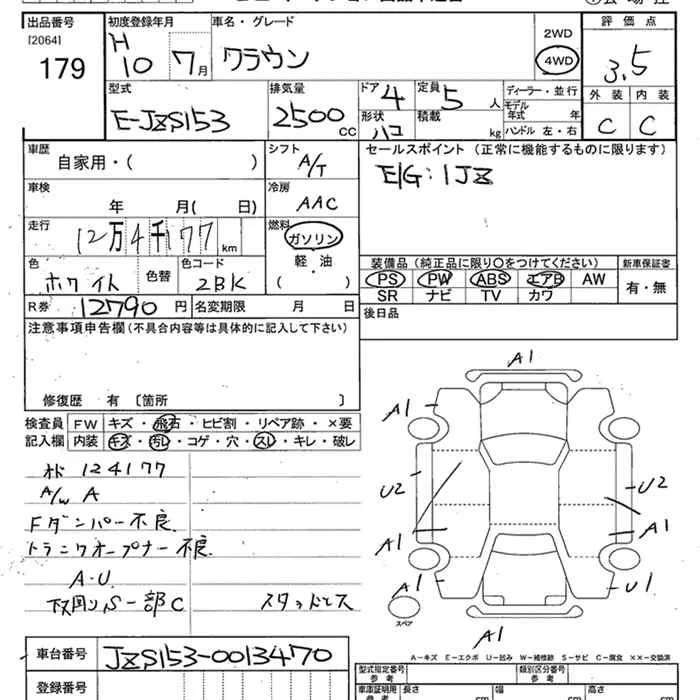 出品番号
[2064]
179
初度登録年月
H 10 7月
車名・グレード
クラウン
2WD
4WD
評価点
3.5
外装 内装
C C
型式
E-JZS153
排気量
2500 CC
ドア 4
定員 5 人
形状 ハコ
積載 kg
ディーラー・並行
モデル年式 年
ハンドル 左・右
車歴
自家用・( )
シフト
A/T
セールスポイント(正常に機能するものに限ります)
E/G:1JZ
車検
年 月( 日)
冷房
AAC
走行
12万4千177 km
燃料
ガソリン
軽・油
( )
色
ホワイト
色替
色コード
2BK
装備品(純正品に限り○をつけてください)
PS PW ABS エアB AW
SR ナビ TV カワ
新車保証書
有・無
R券 12790 円
名変期限 月 日
後日品
注意事項申告欄(不具合内容等は具体的に記入して下さい)
修復歴 有 [箇所 ]
検査員記入欄
FW キズ・飛石・ヒビ割・リペア跡・×要
内装 キズ・汚れ・コゲ・穴・スレ・キレ・破レ
オド 124177
A/W A
Fダンパー不良
トランクオープナー不良
A・U
下回りS一部C
スタッドレス
A1
A1
A1
U2
U2
A1
A1
A1
U1
スペア
A1
A-キズ E-エクボ U-凹み W-補修跡 S-サビ C-腐食 ××-交換済
車台番号
JZS153-0013470
登録番号
型式指定番号
参考
類別区分番号
参考
車庫証明用
参考
長さ cm
幅 cm
高さ cm